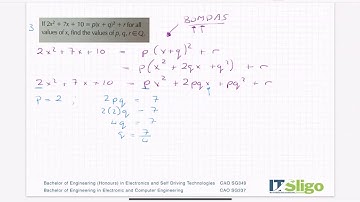 3
If 2x² + 7x + 10 = p(x + q)² + r for all
values of x, find the values of p, q, r ∈ Q.
BOMDAS
↑↑
2x² + 7x + 10 = p(x+q)² + r
= p(x² + 2qx + q²) + r
2x² + 7x + 10 = px² + 2pqx + pq² + r
p = 2, 2pq = 7
2(2)q = 7
4q = 7
q = 7/4
Bachelor of Engineering (Honours) in Electronics and Self Driving Technologies CAO SG348
Bachelor of Engineering in Electronic and Computer Engineering CAO SG337
IT Sligo